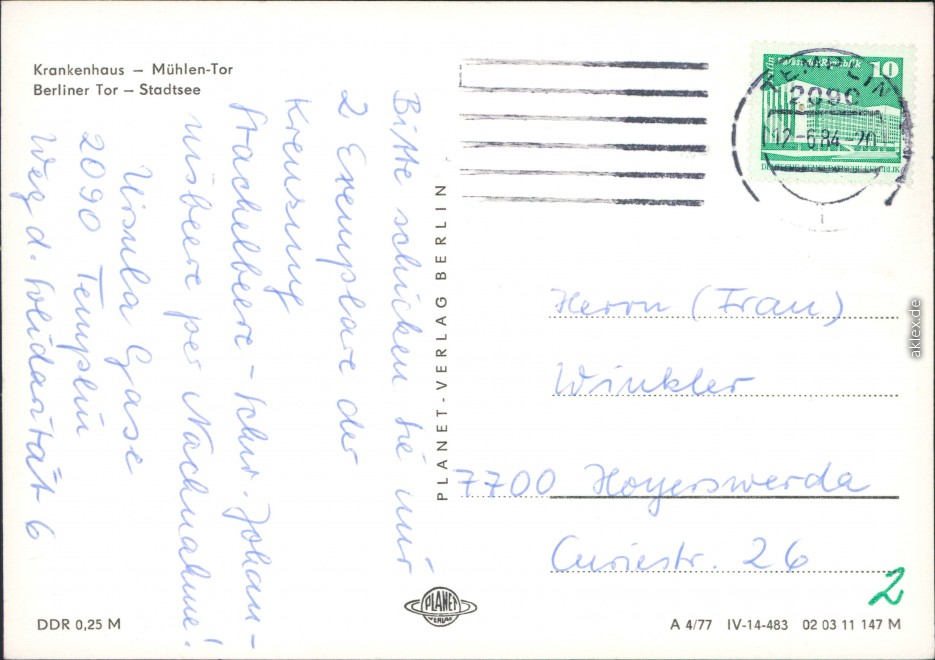 Krankenhaus – Mühlen-Tor
Berliner Tor – Stadtsee
Bitte schicken Sie mir
2 Exemplare der
Kreuzung
Stachelbeere - schw. Johan-
nisbeere per Nachnahme!
Ursula Gase
2090 Templin
Weg d. Solidarität 6
PLANET-VERLAG BERLIN
10
DEUTSCHE DEMOKRATISCHE REPUBLIK
TEMPLIN
2090
12.-6.84-20
Herrn (Frau)
Winkler
7700 Hoyerswerda
Curiestr. 26
2
aklex.de
PLANET
VERLAG
DDR 0,25 M
A 4/77 IV-14-483 02 03 11 147 M